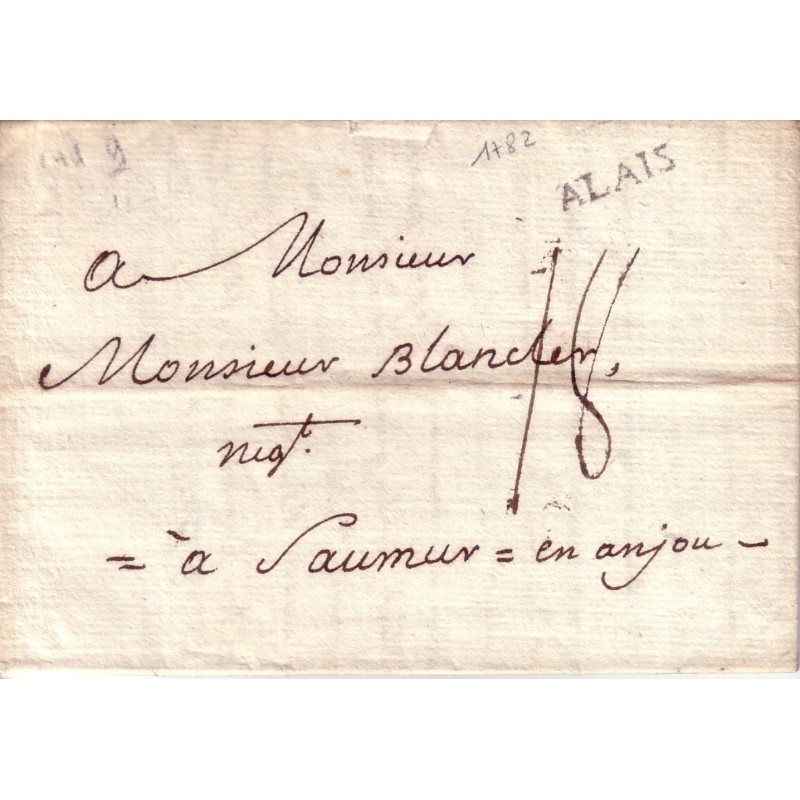 9
1782
ALAIS
a Monsieur
Monsieur Blancler,
18
negt.
= à Saumur = en anjou -